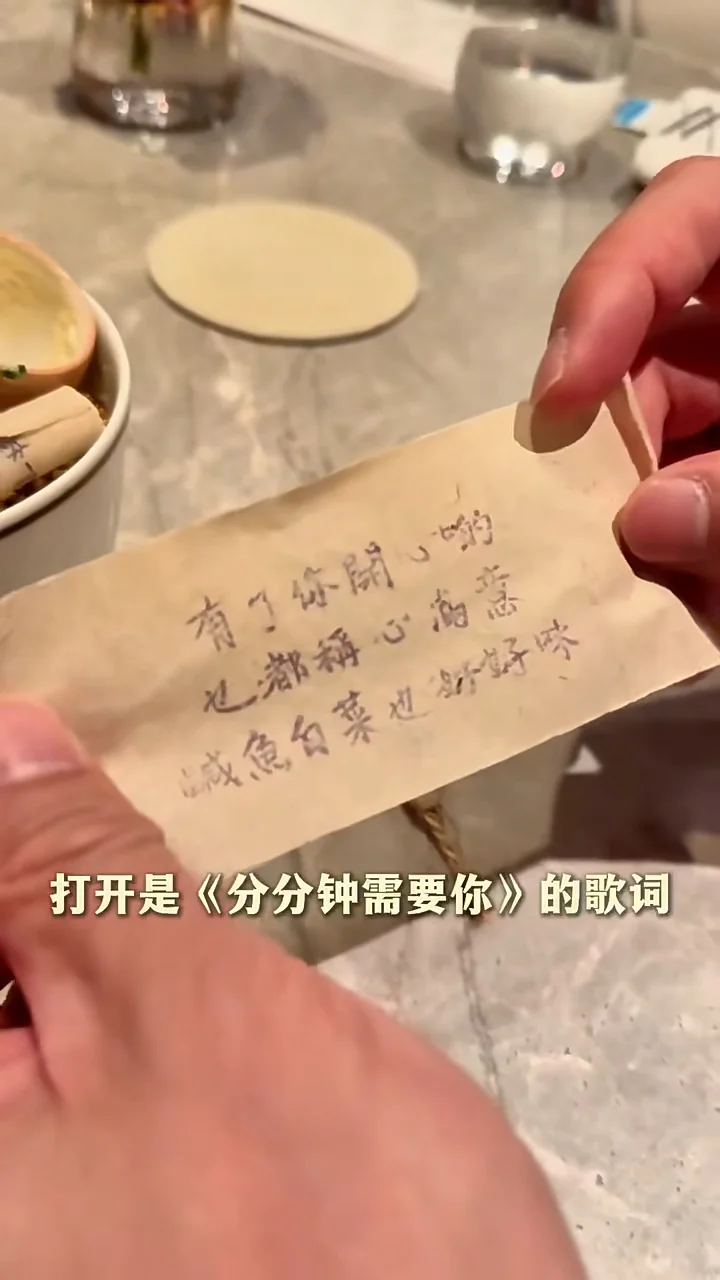 有了你開心啲
也都稱心滿意
鹹魚白菜也好好味
打开是《分分钟需要你》的歌词